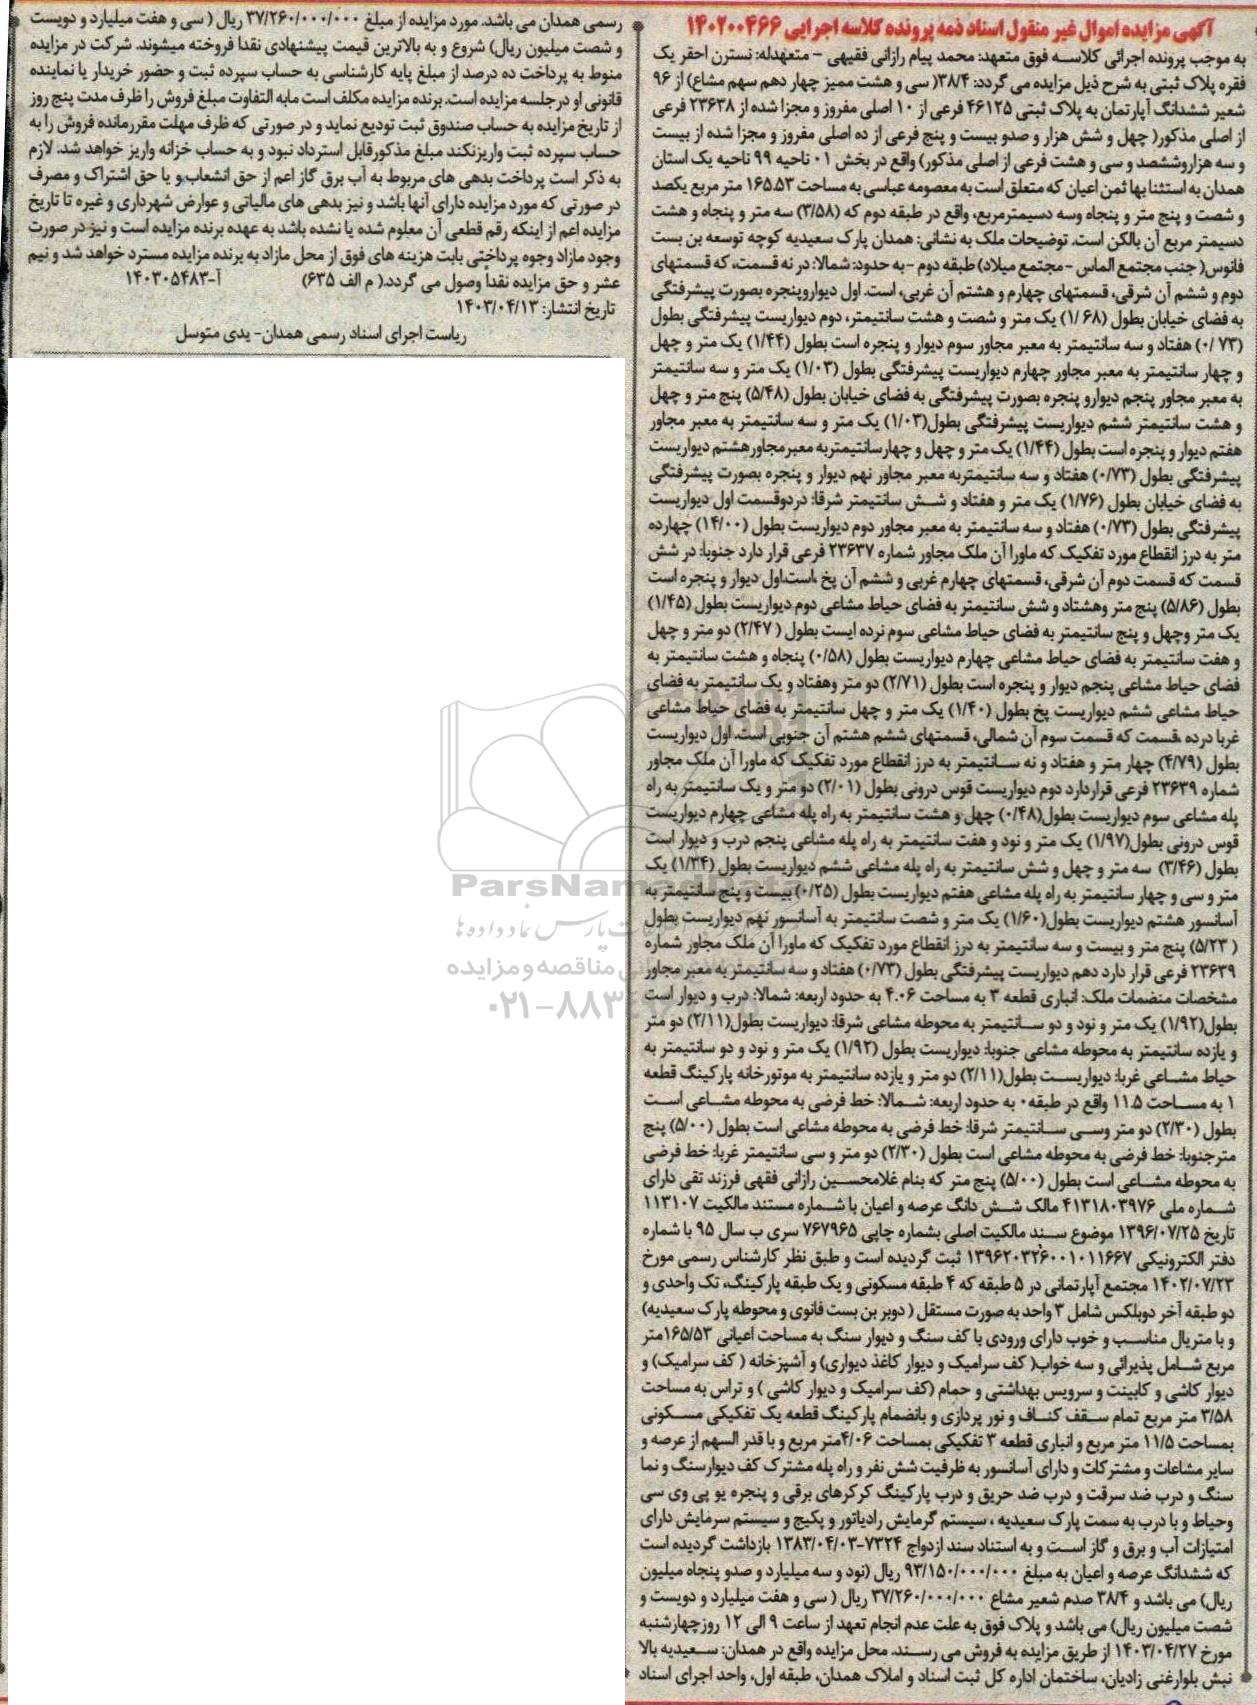 آگهی مزایده اموال غیر منقول اسناد ذمه پرونده کلاسه اجرایی ۱۴۰۲۰۰۴۶۶
به موجب پرونده اجرائی کلاسه فوق متعهد: محمد پیام رازانی فقیهی - متعهدله: نسترن احقر یک
فقره پلاک ثبتی به شرح ذیل مزایده می گردد: ۳۸/۴( سی و هشت ممیز چهار دهم سهم مشاع) از ۹۶
شعیر ششدانگ آپارتمان به پلاک ثبتی ۴۶۱۲۵ فرعی از ۱۰ اصلی مفروز و مجزا شده از ۲۳۶۳۸ فرعی
از اصلی مذکور( چهل و شش هزار و صدو بیست و پنج فرعی از ده اصلی مفروز و مجزا شده از بیست
و سه هزاروششصد و سی و هشت فرعی از اصلی مذکور) واقع در بخش ۰۱ ناحیه ۹۹ ناحیه یک استان
همدان به استثنا بها ثمن اعیان که متعلق است به معصومه عباسی به مساحت ۱۶۵.۵۳ متر مربع یکصد
و شصت و پنج متر و پنجاه وسه دسیمترمربع، واقع در طبقه دوم که (۳/۵۸) سه متر و پنجاه و هشت
دسیمتر مربع آن بالکن است. توضیحات ملک به نشانی: همدان پارک سعیدیه کوچه توسعه بن بست
فانوس( جنب مجتمع الماس - مجتمع میلاد) طبقه دوم -به حدود: شمالا: در نه قسمت، که قسمتهای
دوم و ششم آن شرقی، قسمتهای چهارم و هشتم آن غربی، است. اول دیواروپنجره بصورت پیشرفتگی
به فضای خیابان بطول (۱/۶۸) یک متر و شصت و هشت سانتیمتر، دوم دیواریست پیشرفتگی بطول
(۰/۷۳) هفتاد و سه سانتیمتر به معبر مجاور سوم دیوار و پنجره است بطول (۱/۴۴) یک متر و چهل
و چهار سانتیمتر به معبر مجاور چهارم دیواریست پیشرفتگی بطول (۱/۰۳) یک متر و سه سانتیمتر
به معبر مجاور پنجم دیوارو پنجره بصورت پیشرفتگی به فضای خیابان بطول (۵/۴۸) پنج متر و چهل
و هشت سانتیمتر ششم دیواریست پیشرفتگی بطول(۱/۰۳) یک متر و سه سانتیمتر به معبر مجاور
هفتم دیوار و پنجره است بطول (۱/۴۴) یک متر و چهل و چهارسانتیمتربه معبرمجاورهشتم دیواریست
پیشرفتگی بطول (۰/۷۳) هفتاد و سه سانتیمتربه معبر مجاور نهم دیوار و پنجره بصورت پیشرفتگی
به فضای خیابان بطول (۱/۷۶) یک متر و هفتاد و شش سانتیمتر شرقا: دردوقسمت اول دیواریست
پیشرفتگی بطول (۰/۷۳) هفتاد و سه سانتیمتر به معبر مجاور دوم دیواریست بطول (۱۴/۰۰) چهارده
متر به درز انقطاع مورد تفکیک که ماورا آن ملک مجاور شماره ۲۳۶۳۷ فرعی قرار دارد جنوبا: در شش
قسمت که قسمت دوم آن شرقی، قسمتهای چهارم غربی و ششم آن پخ ،است،اول دیوار و پنجره است
بطول (۵/۸۶) پنج متر وهشتاد و شش سانتیمتر به فضای حیاط مشاعی دوم دیواریست بطول (۱/۴۵)
یک متر وچهل و پنج سانتیمتر به فضای حیاط مشاعی سوم نرده ایست بطول ( ۲/۴۷) دو متر و چهل
و هفت سانتیمتر به فضای حیاط مشاعی چهارم دیواریست بطول (۰/۵۸) پنجاه و هشت سانتیمتر به
فضای حیاط مشاعی پنجم دیوار و پنجره است بطول (۲/۷۱) دو متر وهفتاد و یک سانتیمتر به فضای
حیاط مشاعی ششم دیواریست پخ بطول (۱/۴۰) یک متر و چهل سانتیمتر به فضای حیاط مشاعی
غربا درده ،قسمت که قسمت سوم آن شمالی، قسمتهای ششم هشتم آن جنوبی است. اول دیواریست
بطول (۴/۷۹) چهار متر و هفتاد و نه سانتیمتر به درز انقطاع مورد تفکیک که ماورا آن ملک مجاور
شماره ۲۳۶۳۹ فرعی قراردارد دوم دیواریست قوس درونی بطول (۲/۰۱) دو متر و یک سانتیمتر به راه
پله مشاعی سوم دیواریست بطول(۰/۴۸) چهل و هشت سانتیمتر به راه پله مشاعی چهارم دیواریست
قوس درونی بطول(۱/۹۷) یک متر و نود و هفت سانتیمتر به راه پله مشاعی پنجم درب و دیوار است
بطول (۳/۴۶) سه متر و چهل و شش سانتیمتر به راه پله مشاعی ششم دیواریست بطول (۱/۳۴) یک
متر و سی و چهار سانتیمتر به راه پله مشاعی هفتم دیواریست بطول (۰/۲۵) بیست و پنج سانتیمتر به
آسانسور هشتم دیواریست بطول(۱/۶۰) یک متر و شصت سانتیمتر به آسانسور نهم دیواریست بطول
( ۵/۲۳) پنج متر و بیست و سه سانتیمتر به درز انقطاع مورد تفکیک که ماورا آن ملک مجاور شماره
۲۳۶۳۹ فرعی قرار دارد دهم دیواریست پیشرفتگی بطول (۰/۷۳) هفتاد و سه سانتیمتر به معبر مجاور
مشخصات منضمات ملک: انباری قطعه ۳ به مساحت ۴.۰۶ به حدود اربعه: شمالا: درب و دیوار است
بطول(۱/۹۲) یک متر و نود و دو سانتیمتر به محوطه مشاعی شرقا: دیواریست بطول(۲/۱۱) دو متر
و یازده سانتیمتر به محوطه مشاعی جنوبا: دیواریست بطول (۱/۹۲) یک متر و نود و دو سانتیمتر به
حیاط مشاعی غربا: دیواریست بطول(۲/۱۱) دو متر و یازده سانتیمتر به موتورخانه پارکینگ قطعه
۱ به مساحت ۱۱.۵ واقع در طبقه۰ به حدود اربعه: شمالا: خط فرضی به محوطه مشاعی است
بطول (۲/۳۰) دو متر وسی سانتیمتر شرقا: خط فرضی به محوطه مشاعی است بطول (۵/۰۰) پنج
مترجنوبا: خط فرضی به محوطه مشاعی است بطول (۲/۳۰) دو متر و سی سانتیمتر غربا: خط فرضی
به محوطه مشاعی است بطول (۵/۰۰) پنج متر که بنام غلامحسین رازانی فقهی فرزند تقی دارای
شماره ملی ۴۱۳۱۸۰۳۹۷۶ مالک شش دانگ عرصه و اعیان با شماره مستند مالکیت ۱۱۳۱۰۷
تاریخ ۱۳۹۶/۰۷/۲۵ موضوع سند مالکیت اصلی بشماره چاپی ۷۶۷۹۶۵ سری ب سال ۹۵ با شماره
دفتر الکترونیکی ۱۳۹۶۲۰۳۲۶۰۰۱۰۱۱۶۶۷ ثبت گردیده است و طبق نظر کارشناس رسمی مورخ
۱۴۰۲/۰۷/۲۳ مجتمع آپارتمانی در ۵ طبقه که ۴ طبقه مسکونی و یک طبقه پارکینگ، تک واحدی و
دو طبقه آخر دوبلکس شامل ۳ واحد به صورت مستقل ( دوبر بن بست فانوی و محوطه پارک سعیدیه)
و با متریال مناسب و خوب دارای ورودی با کف سنگ و دیوار سنگ به مساحت اعیانی ۱۶۵/۵۳متر
مربع شامل پذیرائی و سه خواب( کف سرامیک و دیوار کاغذ دیواری) و آشپزخانه ( کف سرامیک) و
دیوار کاشی و کابینت و سرویس بهداشتی و حمام (کف سرامیک و دیوار کاشی ) و تراس به مساحت
۳/۵۸ متر مربع تمام سقف کناف و نور پردازی و بانضمام پارکینگ قطعه یک تفکیکی مسکونی
بمساحت ۱۱/۵ متر مربع و انباری قطعه ۳ تفکیکی بمساحت ۴/۰۶متر مربع و با قدر السهم از عرصه و
سایر مشاعات و مشترکات و دارای آسانسور به ظرفیت شش نفر و راه پله مشترک کف دیوارسنگ و نما
سنگ و درب ضد سرقت و درب ضد حریق و درب پارکینگ کرکرهای برقی و پنجره یو پی وی سی
وحیاط و با درب به سمت پارک سعیدیه ، سیستم گرمایش رادیاتور و پکیج و سیستم سرمایش دارای
امتیازات آب و برق و گاز است و به استناد سند ازدواج ۷۳۲۴-۱۳۸۳/۰۴/۰۳ بازداشت گردیده است
که ششدانگ عرصه و اعیان به مبلغ ۹۳/۱۵۰/۰۰۰/۰۰۰ ریال (نود و سه میلیارد و صدو پنجاه میلیون
ریال) می باشد و ۳۸/۴ صدم شعیر مشاع ۳۷/۲۶۰/۰۰۰/۰۰۰ ریال ( سی و هفت میلیارد و دویست و
شصت میلیون ریال) می باشد و پلاک فوق به علت عدم انجام تعهد از ساعت ۹ الی ۱۲ روزچهارشنبه
مورخ ۱۴۰۳/۰۴/۲۷ از طریق مزایده به فروش می رسند. محل مزایده واقع در همدان: سعیدیه بالا
نبش بلوارغنی زادیان، ساختمان اداره کل ثبت اسناد و املاک همدان، طبقه اول، واحد اجرای اسناد
رسمی همدان می باشد. مورد مزایده از مبلغ ۳۷/۲۶۰/۰۰۰/۰۰۰ ریال ( سی و هفت میلیارد و دویست
و شصت میلیون ریال) شروع و به بالاترین قیمت پیشنهادی نقدا فروخته میشوند. شرکت در مزایده
منوط به پرداخت ده درصد از مبلغ پایه کارشناسی به حساب سپرده ثبت و حضور خریدار یا نماینده
قانونی او درجلسه مزایده است. برنده مزایده مکلف است مابه التفاوت مبلغ فروش را ظرف مدت پنج روز
از تاریخ مزایده به حساب صندوق ثبت تودیع نماید و در صورتی که ظرف مهلت مقررمانده فروش را به
حساب سپرده ثبت واریزنکند مبلغ مذکورقابل استرداد نبود و به حساب خزانه واریز خواهد شد. لازم
به ذکر است پرداخت بدهی های مربوط به آب برق گاز اعم از حق انشعاب،و یا حق اشتراک و مصرف
در صورتی که مورد مزایده دارای آنها باشد و نیز بدهی های مالیاتی و عوارض شهرداری و غیره تا تاریخ
مزایده اعم از اینکه رقم قطعی آن معلوم شده یا نشده باشد به عهده برنده مزایده است و نیز در صورت
وجود مازاد وجوه پرداختی بابت هزینه های فوق از محل مازاد به برنده مزایده مسترد خواهد شد و نیم
عشر و حق مزایده نقداً وصول می گردد.( م الف ۶۳۵) آ-۱۴۰۳۰۵۴۸۳
تاریخ انتشار: ۱۴۰۳/۰۴/۱۳
ریاست اجرای اسناد رسمی همدان- یدی متوسل
ParsNamadData
پارس نماد داده ها
مناقصه و مزایده